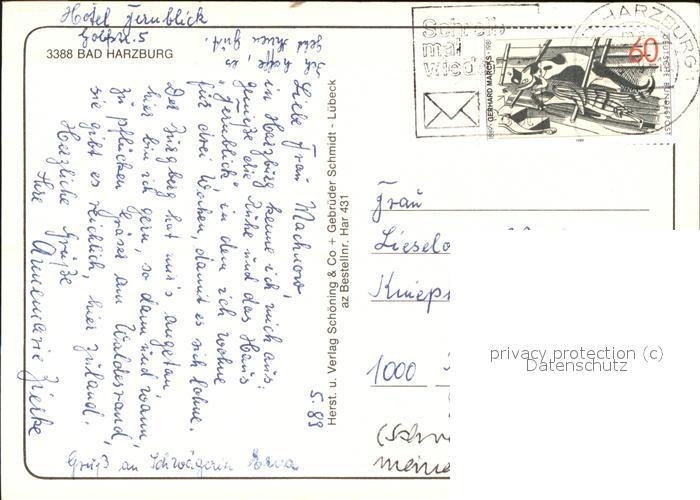 Hotel Fernblick
Golfstr. 5
3388 BAD HARZBURG
Ich hoffe, es
geht Ihnen gut.
Liebe Frau Machnow,
in Harzburg kenne ich mich aus:
genieße die Ruhe und das Haus
"Fernblick" in dem ich wohne
für drei Wochen, damit es sich lohne.
Der Burgberg hat mir's angetan,
hier bin ich gern, so dann und wann,
zu pflücken Gräser am Waldesrand,
sie gibt es reichlich, hier zuland.
Herzliche Grüße
Ihre Annemarie
Gruß an Schwägerin
5.89
Herst. u. Verlag Schöning & Co + Gebrüder Schmidt - Lübeck
az Bestellnr. Har 431
Schreib
mal
wieder
HARZBURG
60
DEUTSCHE BUNDESPOST
GERHARD MARCKS
1989
Frau
Lieselo
Kniep
1000
(Schw
meine
privacy protection (c)
Datenschutz